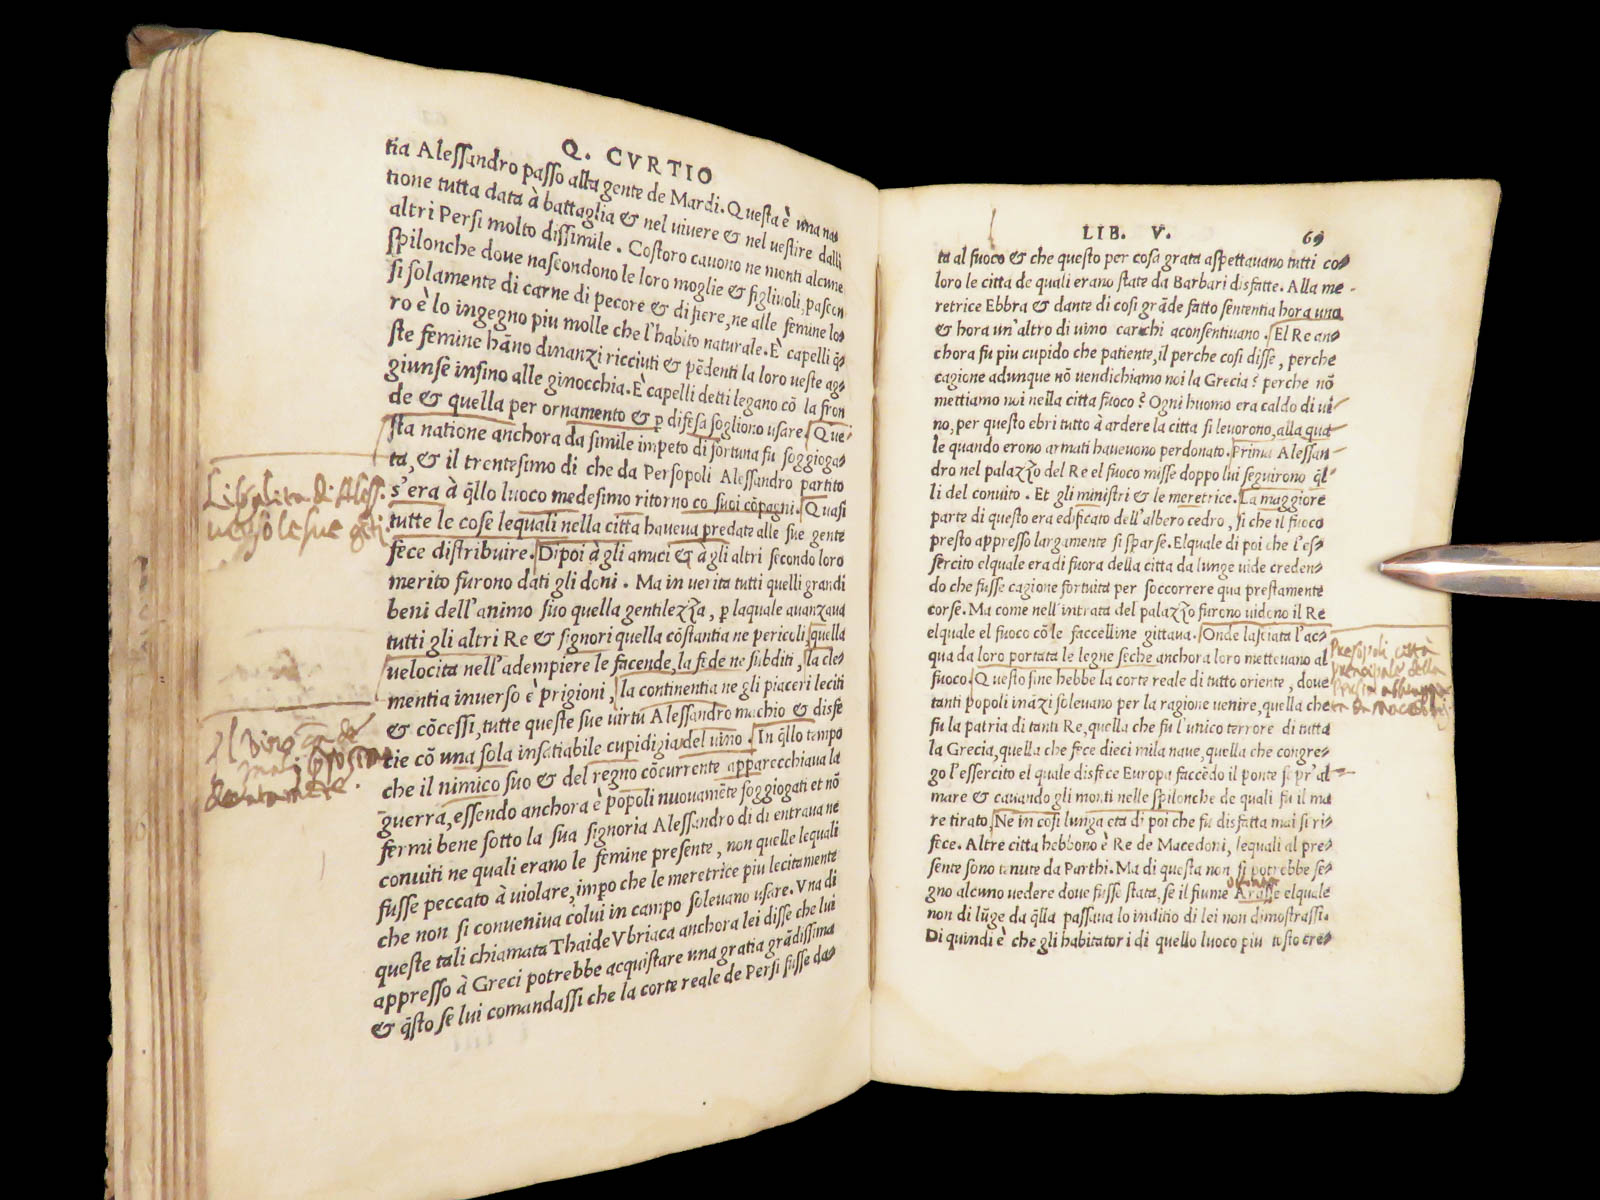 Q. CVRTIO
tia Alessandro passo alla gente de Mardi. Questa è una na⸗
tione tutta data à battaglia & nel uiuere & nel uestire dalli
altri Persi molto dissimile. Costoro cauono ne monti alcune
spilonche doue nascondono le loro moglie & figliuoli, pascon
si solamente di carne di pecore & di fiere, ne alle femine lo⸗
ro è lo ingegno piu molle che l'habito naturale. E' capelli q̃⸗
ste femine hãno dinanzi ricciuti & pẽdenti la loro ueste ag⸗
giunse insino alle ginocchia. E' capelli detti legano cõ la fron
de & quella per ornamento & ꝑ difesa sogliono usare. Que⸗
sta natione anchora da simile impeto di fortuna fu soggioga⸗
ta, & il trentesimo di che da Persopoli Alessandro partito
s'era à q̃llo luoco medesimo ritorno co suoi cõpagni. Quasi
tutte le cose lequali nella citta haueua predate alle sue gente
fece distribuire. Dipoi à gli amici & à gli altri secondo loro
merito furono dati gli doni. Ma in uerita tutti quelli grandi
beni dell'animo suo quella gentilezza, ꝑ laquale auanzaua
tutti gli altri Re & signori quella cõstantia ne pericoli, quella
uelocita nell'adempiere le facende, la fede ne subditi, la cle⸗
mentia inuerso è prigioni, la continentia ne gli piaceri leciti
& cõcessi, tutte queste sue uirtu Alessandro machio & disfe
cie cõ una sola insatiabile cupidigia del uino. In q̃llo tempo
che il nimico suo & del regno cõcurrente apparecchiaua la
guerra, essendo anchora è popoli nuouamẽte soggiogati et nõ
fermi bene sotto la sua signoria Alessandro di di entraua ne
conuiti ne quali erano le femine presente, non quelle lequali
fusse peccato à uiolare, impo che le meretrice piu lecitamente
che non si conueniua colui in campo soleuano usare. Vna di
queste tali chiamata Thaide Vbriaca anchora lei disse che lui
appresso à Greci potrebbe acquistare una gratia grãdissima
& q̃sto se lui comandassi che la corte reale de Persi fusse da⸗
Liberalita di Aless.
uerso le sue gẽti
Il vino
LIB. V. 69
ta al fuoco & che questo per cosa grata aspettauano tutti co⸗
loro le citta de quali erano state da Barbari disfatte. Alla me⸗
retrice Ebbra & dante di cosi grãde fatto sententia hora uno
& hora un'altro di uino carichi aconsentiuano. El Re an⸗
chora fu piu cupido che patiente, il perche cosi disse, perche
cagione adunque nõ uendichiamo noi la Grecia? perche nõ
mettiamo noi nella citta fuoco? Ogni huomo era caldo di ui⸗
no, per questo ebri tutto à ardere la citta si leuorono, alla qua⸗
le quando erono armati haueuono perdonato. Prima Alessan⸗
dro nel palazzo del Re el fuoco misse doppo lui seguirono q̃l⸗
li del conuito. Et gli ministri & le meretrice. La maggiore
parte di questo era edificato dell'albero cedro, si che il fuoco
presto appresso largamente si sparse. Elquale di poi che l'es⸗
sercito elquale era di fuora della citta da lunge uide creden⸗
do che fusse cagione fortuita per soccorrere qua prestamente
corse. Ma come nell'intrata del palazzo furono uidono il Re
elquale el fuoco cõ le faccelline gittaua. Onde lasciata l'ac⸗
qua da loro portata le legne seche anchora loro metteuano al
fuoco. Questo fine hebbe la corte reale di tutto oriente, doue
tanti popoli inãzi soleuano per la ragione uenire, quella che
fu la patria di tanti Re, quella che fu l'unico terrore di tutta
la Grecia, quella che fece dieci mila naue, quella che congre⸗
go l'essercito el quale disfece Europa faccẽdo il ponte sopr'al⸗
mare & cauando gli monti nelle spilonche de quali fu il ma
re tirato. Ne in cosi lunga eta di poi che fu disfatta mai si ri⸗
fece. Altre citta hebbono è Re de Macedoni, lequali al pre⸗
sente sono tenute da Parthi. Ma di questa non si potrebbe se⸗
gno alcuno uedere doue fusse stata, se il fiume Arasse elquale
non di lũge da q̃lla passaua lo inditio di lei non dimostrassi.
Di quindi è che gli habitatori di quello luoco piu tosto cre⸗
Persopoli città
principale della
Persia